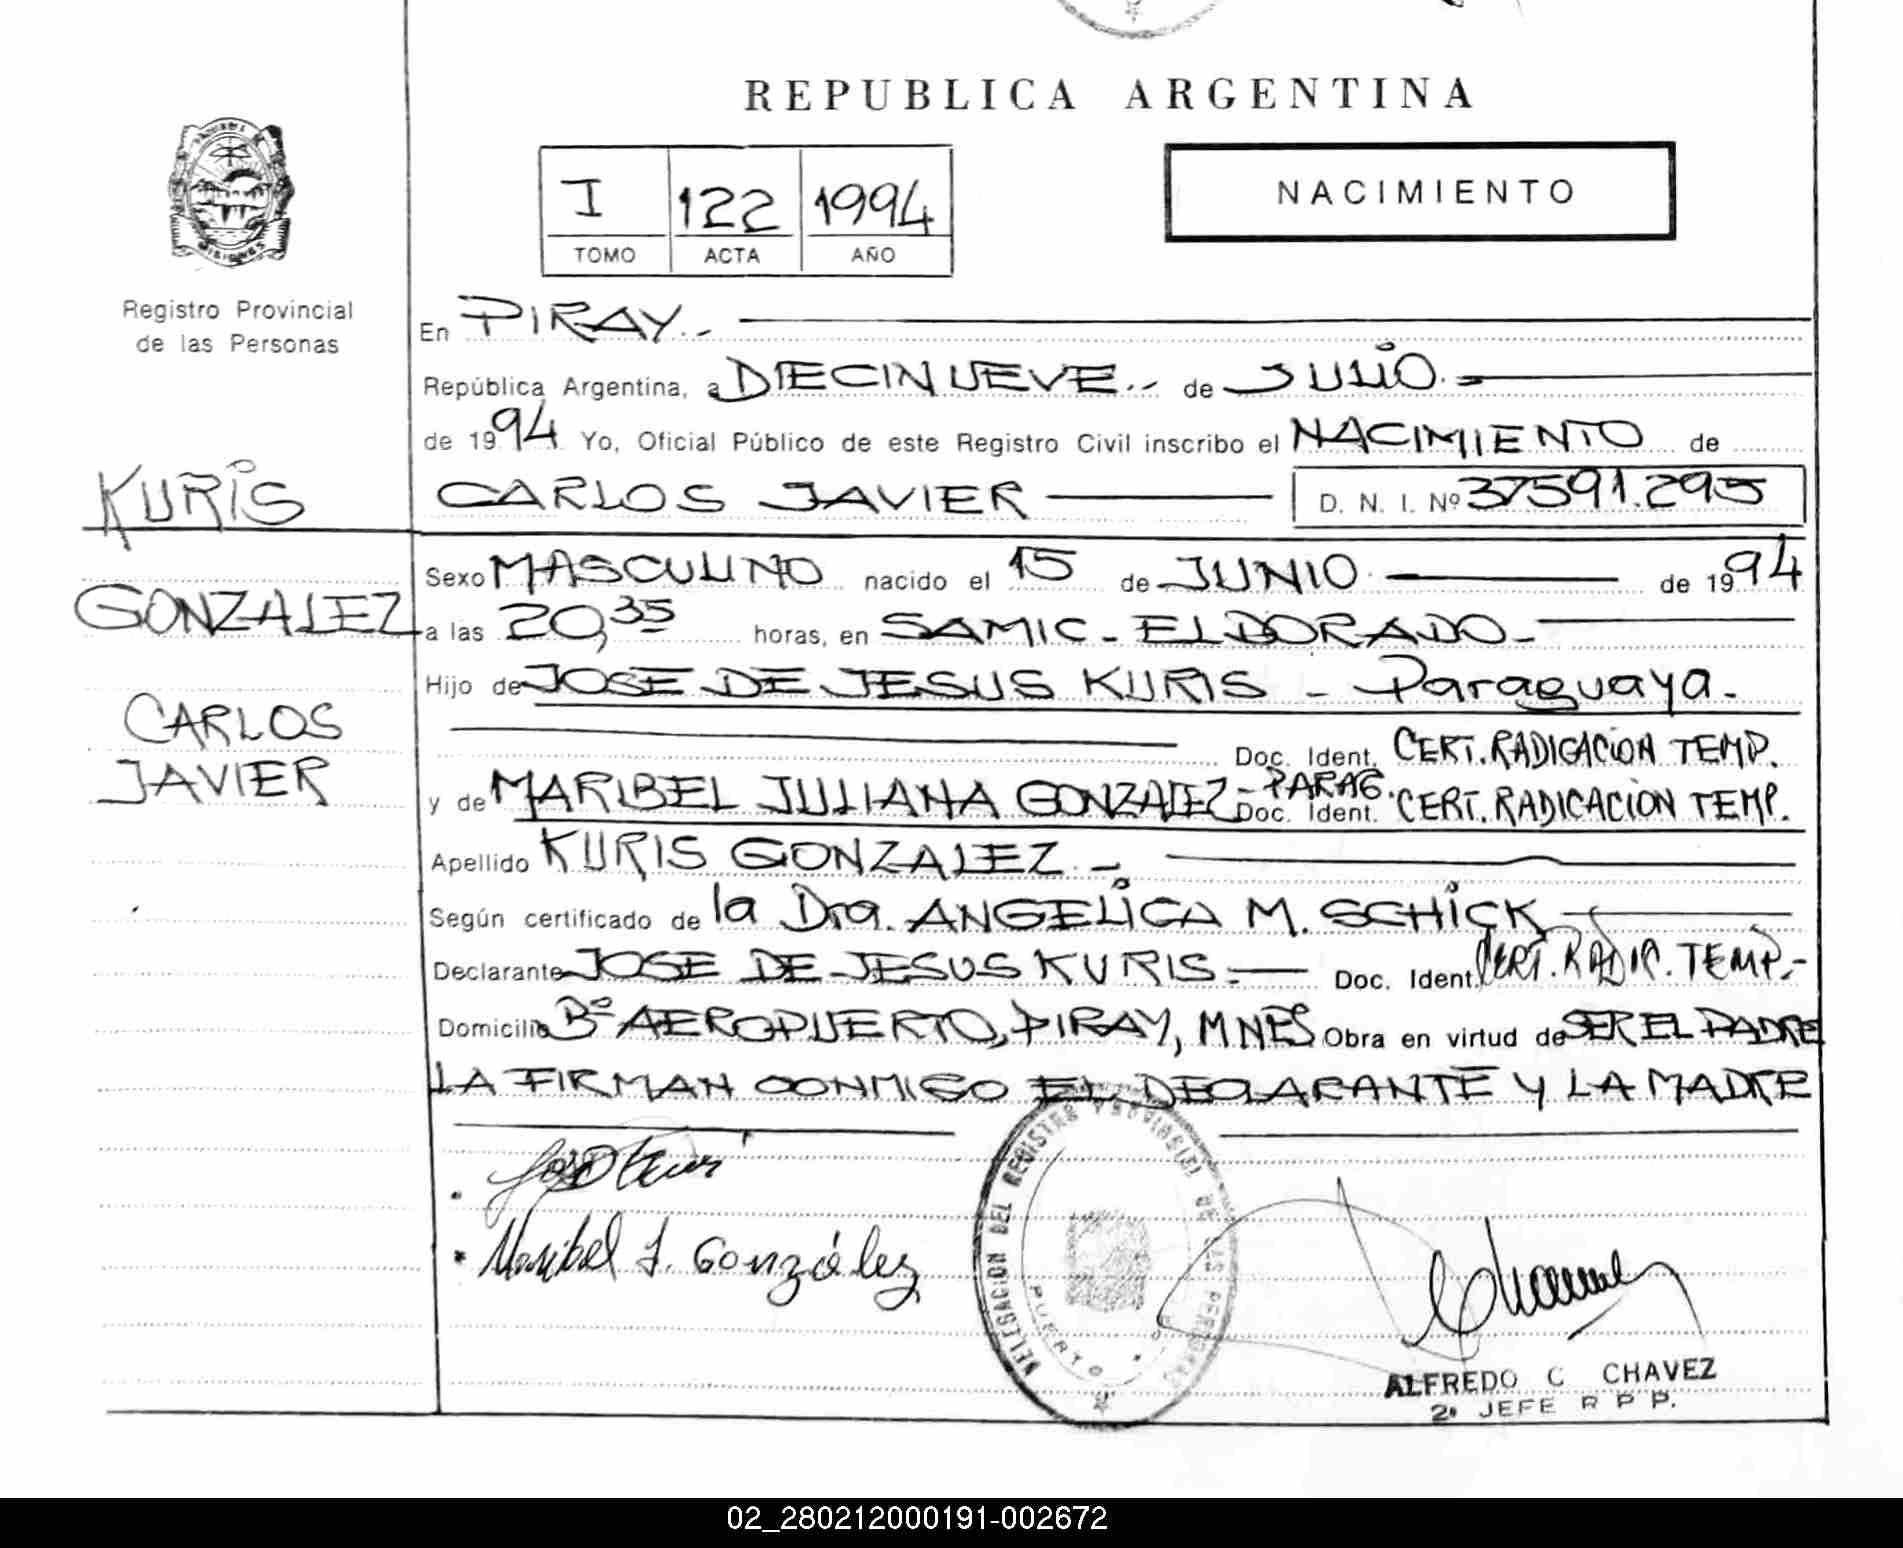 REPUBLICA ARGENTINA
I 122 1994
TOMO ACTA AÑO
NACIMIENTO
MISIONES
Registro Provincial
de las Personas
KURIS
GONZALEZ
CARLOS
JAVIER
En PIRAY.-
República Argentina, a DIECINUEVE.- de JULIO.-
de 1994 Yo, Oficial Público de este Registro Civil inscribo el NACIMIENTO de
CARLOS JAVIER D. N. I. Nº 37591.295
Sexo MASCULINO nacido el 15 de JUNIO de 1994
a las 20,35 horas, en SAMIC - ELDORADO-
Hijo de JOSE DE JESUS KURIS - Paraguaya.
Doc. Ident. CERT. RADICACION TEMP.
y de MARIBEL JULIANA GONZALEZ - PARAG. Doc. Ident. CERT. RADICACION TEMP.
Apellido KURIS GONZALEZ.-
Según certificado de la Dra. ANGELICA M. SCHICK
Declarante JOSE DE JESUS KURIS.- Doc. Ident. CERT. RADIC. TEMP.-
Domicilio Bº AEROPUERTO, PIRAY, MNES Obra en virtud de SER EL PADRE
LA FIRMAN CONMIGO EL DECLARANTE Y LA MADRE
Maribel J. González
DELEGACION DEL REGISTRO PROVINCIAL DE LAS PERSONAS
PUERTO
ALFREDO C CHAVEZ
2º JEFE R P P.
02_280212000191-002672